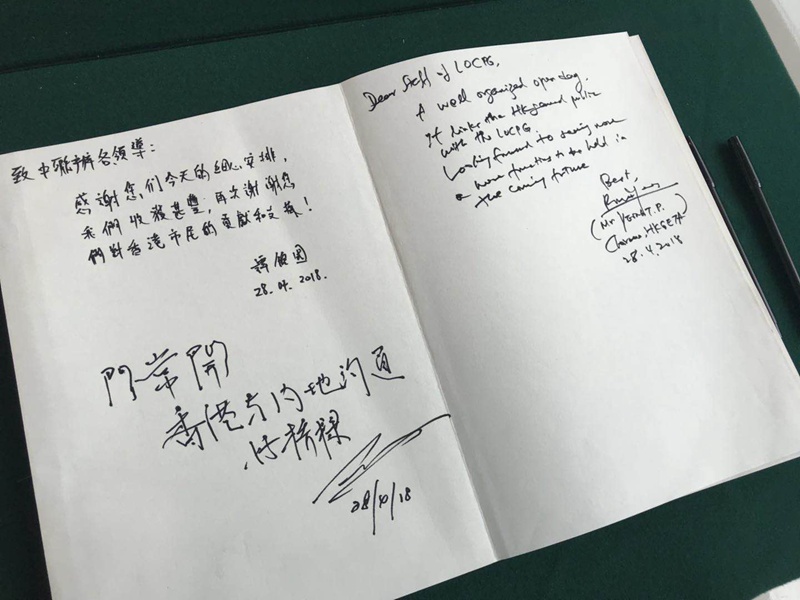 致中聯辦各領導：
感謝您們今天的組織安排，
我們收穫甚豐，再次謝謝您
們對香港市民的貢獻和支持！
28.04.2018.
門常開
香港与内地沟通
好桥梁
28/4/18
Dear Staff of LOCPG,
A well organized open day.
It links the Hong Kong public
with the LOCPG
Looking forward to seeing more
& more functions to be held in
the coming future
Best,
(Mr YEUNG T.P.
Chairman HKSETA)
28.4.2018